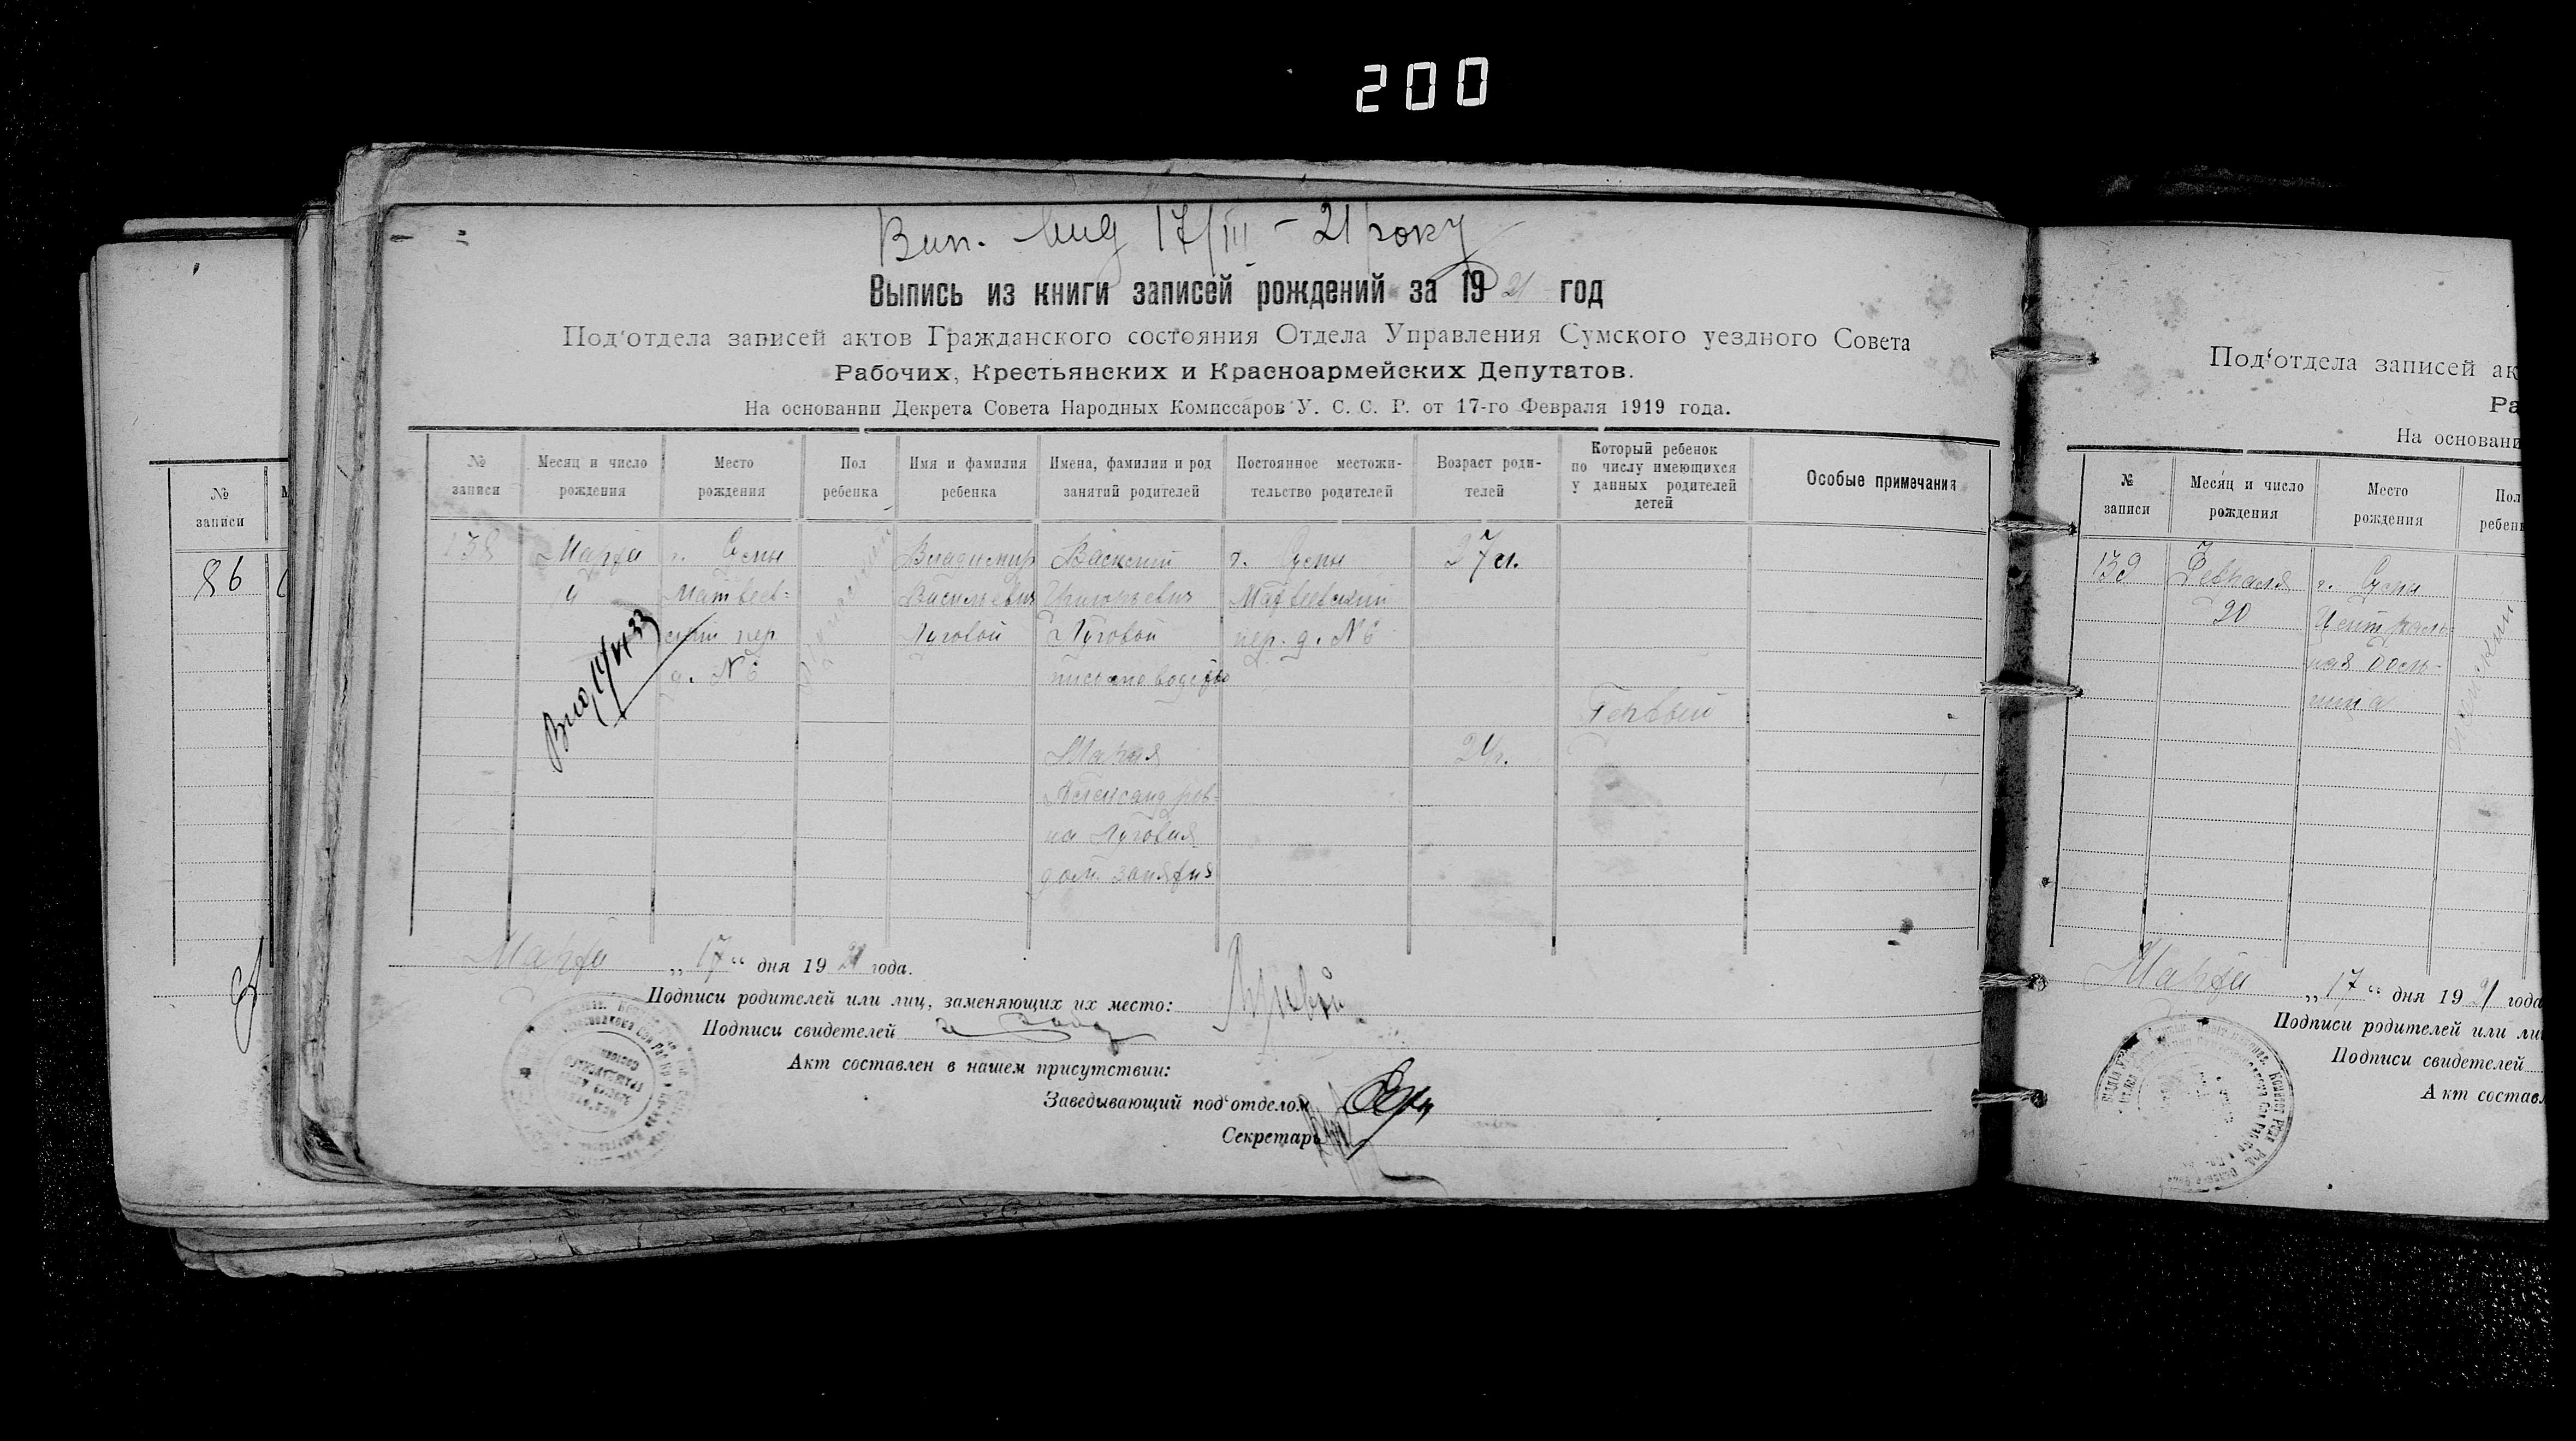 200
Вип. 17/III - 21 року
Выпись из книги записей рождений за 1921 год
Под'отдела записей актов Гражданского состояния Отдела Управления Сумского уездного Совета
Рабочих, Крестьянских и Красноармейских Депутатов.
На основании Декрета Совета Народных Комиссаров У. С. С. Р. от 17-го Февраля 1919 года.
№ записи
Месяц и число рождения
Место рождения
Пол ребенка
Имя и фамилия ребенка
Имена, фамилии и род занятий родителей
Постоянное местожительство родителей
Возраст родителей
Который ребенок по числу имеющихся у данных родителей детей
Особые примечания
138
Марта
г. Сумы
Матвеев-
ский пер
д. № 6
Владимир
Васильевич
Луговой
Василий
Григорьевич
Луговой
г. Сумы
Матвеевский
пер. д. № 6
27 л.
Первый
Мария
Александров-
на Луговая
дом. занятия
Марта „17“ дня 1921 года.
Подписи родителей или лиц, заменяющих их место: Луговой
Подписи свидетелей
Акт составлен в нашем присутствии:
Заведывающий под'отделом
Секретарь
№ записи
86
Под'отдела записей ак
Ра
На основани
№ записи
Месяц и число рождения
Место рождения
Пол ребен
139
Февраля
20
г. Сумы
Централь-
ная Боль-
ница
женский
Марта „17“ дня 1921 года
Подписи родителей или ли
Подписи свидетелей
Акт составл